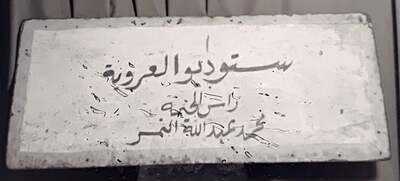 ستوديو العروبة
رأس الخيمة
محمد عبدالله النمر